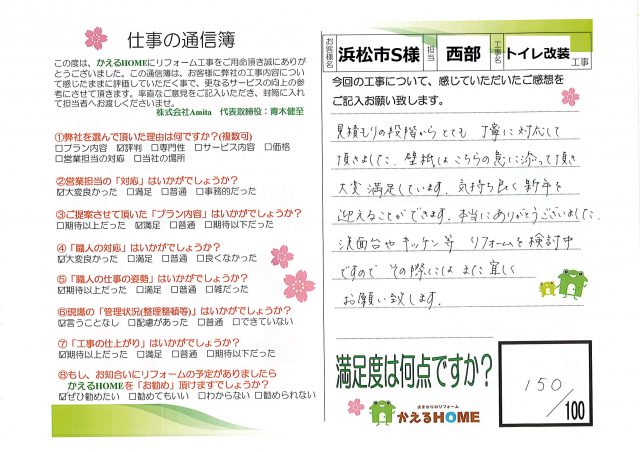 仕事の通信簿
この度は、かえるHOMEにリフォーム工事をご用命頂き誠にありが
とうございました。この通信簿は、お客様に弊社の工事内容につい
て感じたままに評価していただく事で、更なるサービスの向上の参
考にさせて頂きます。率直なご意見をご記入いただき、封筒に入れ
て担当者へお渡しくださいませ。
株式会社Amita 代表取締役：青木健至
①弊社を選んで頂いた理由は何ですか?(複数可)
□プラン内容 ☑評判 □専門性 □サービス内容 □価格
□営業担当の対応 □当社の場所
②営業担当の「対応」はいかがでしょうか?
☑大変良かった □満足 □普通 □事務的だった
③ご提案させて頂いた「プラン内容」はいかがでしょうか?
□期待以上だった ☑満足 □普通 □期待以下だった
④「職人の対応」はいかがでしょうか?
☑大変良かった □満足 □普通 □良くなかった
⑤「職人の仕事の姿勢」はいかがでしょうか?
☑期待以上だった □満足 □普通 □雑だった
⑥現場の「管理状況(整理整頓等)」はいかがでしょうか?
☑言うことなし □配慮があった □普通 □できていない
⑦「工事の仕上がり」はいかがでしょうか?
☑期待以上だった □満足 □普通 □期待以下だった
⑧もし、お知合いにリフォームの予定がありましたら
かえるHOMEを「お勧め」頂けますでしょうか?
☑ぜひ勧めたい □勧めてもいい □わからない □勧められない
お客様名 浜松市S様 担当 西部 工事名 トイレ改装 工事
今回の工事について、感じていただいたご感想を
ご記入お願い致します。
見積もりの段階からとても丁寧に対応して
頂きました。壁紙はこちらの意に添って頂き
大変満足しています。気持ち良く新年を
迎えることができます。本当にありがとうございました。
洗面台やキッチン等 リフォームを検討中
ですので その際にはまた宜しく
お願い致します。
満足度は何点ですか?
150/100
かえるHOME